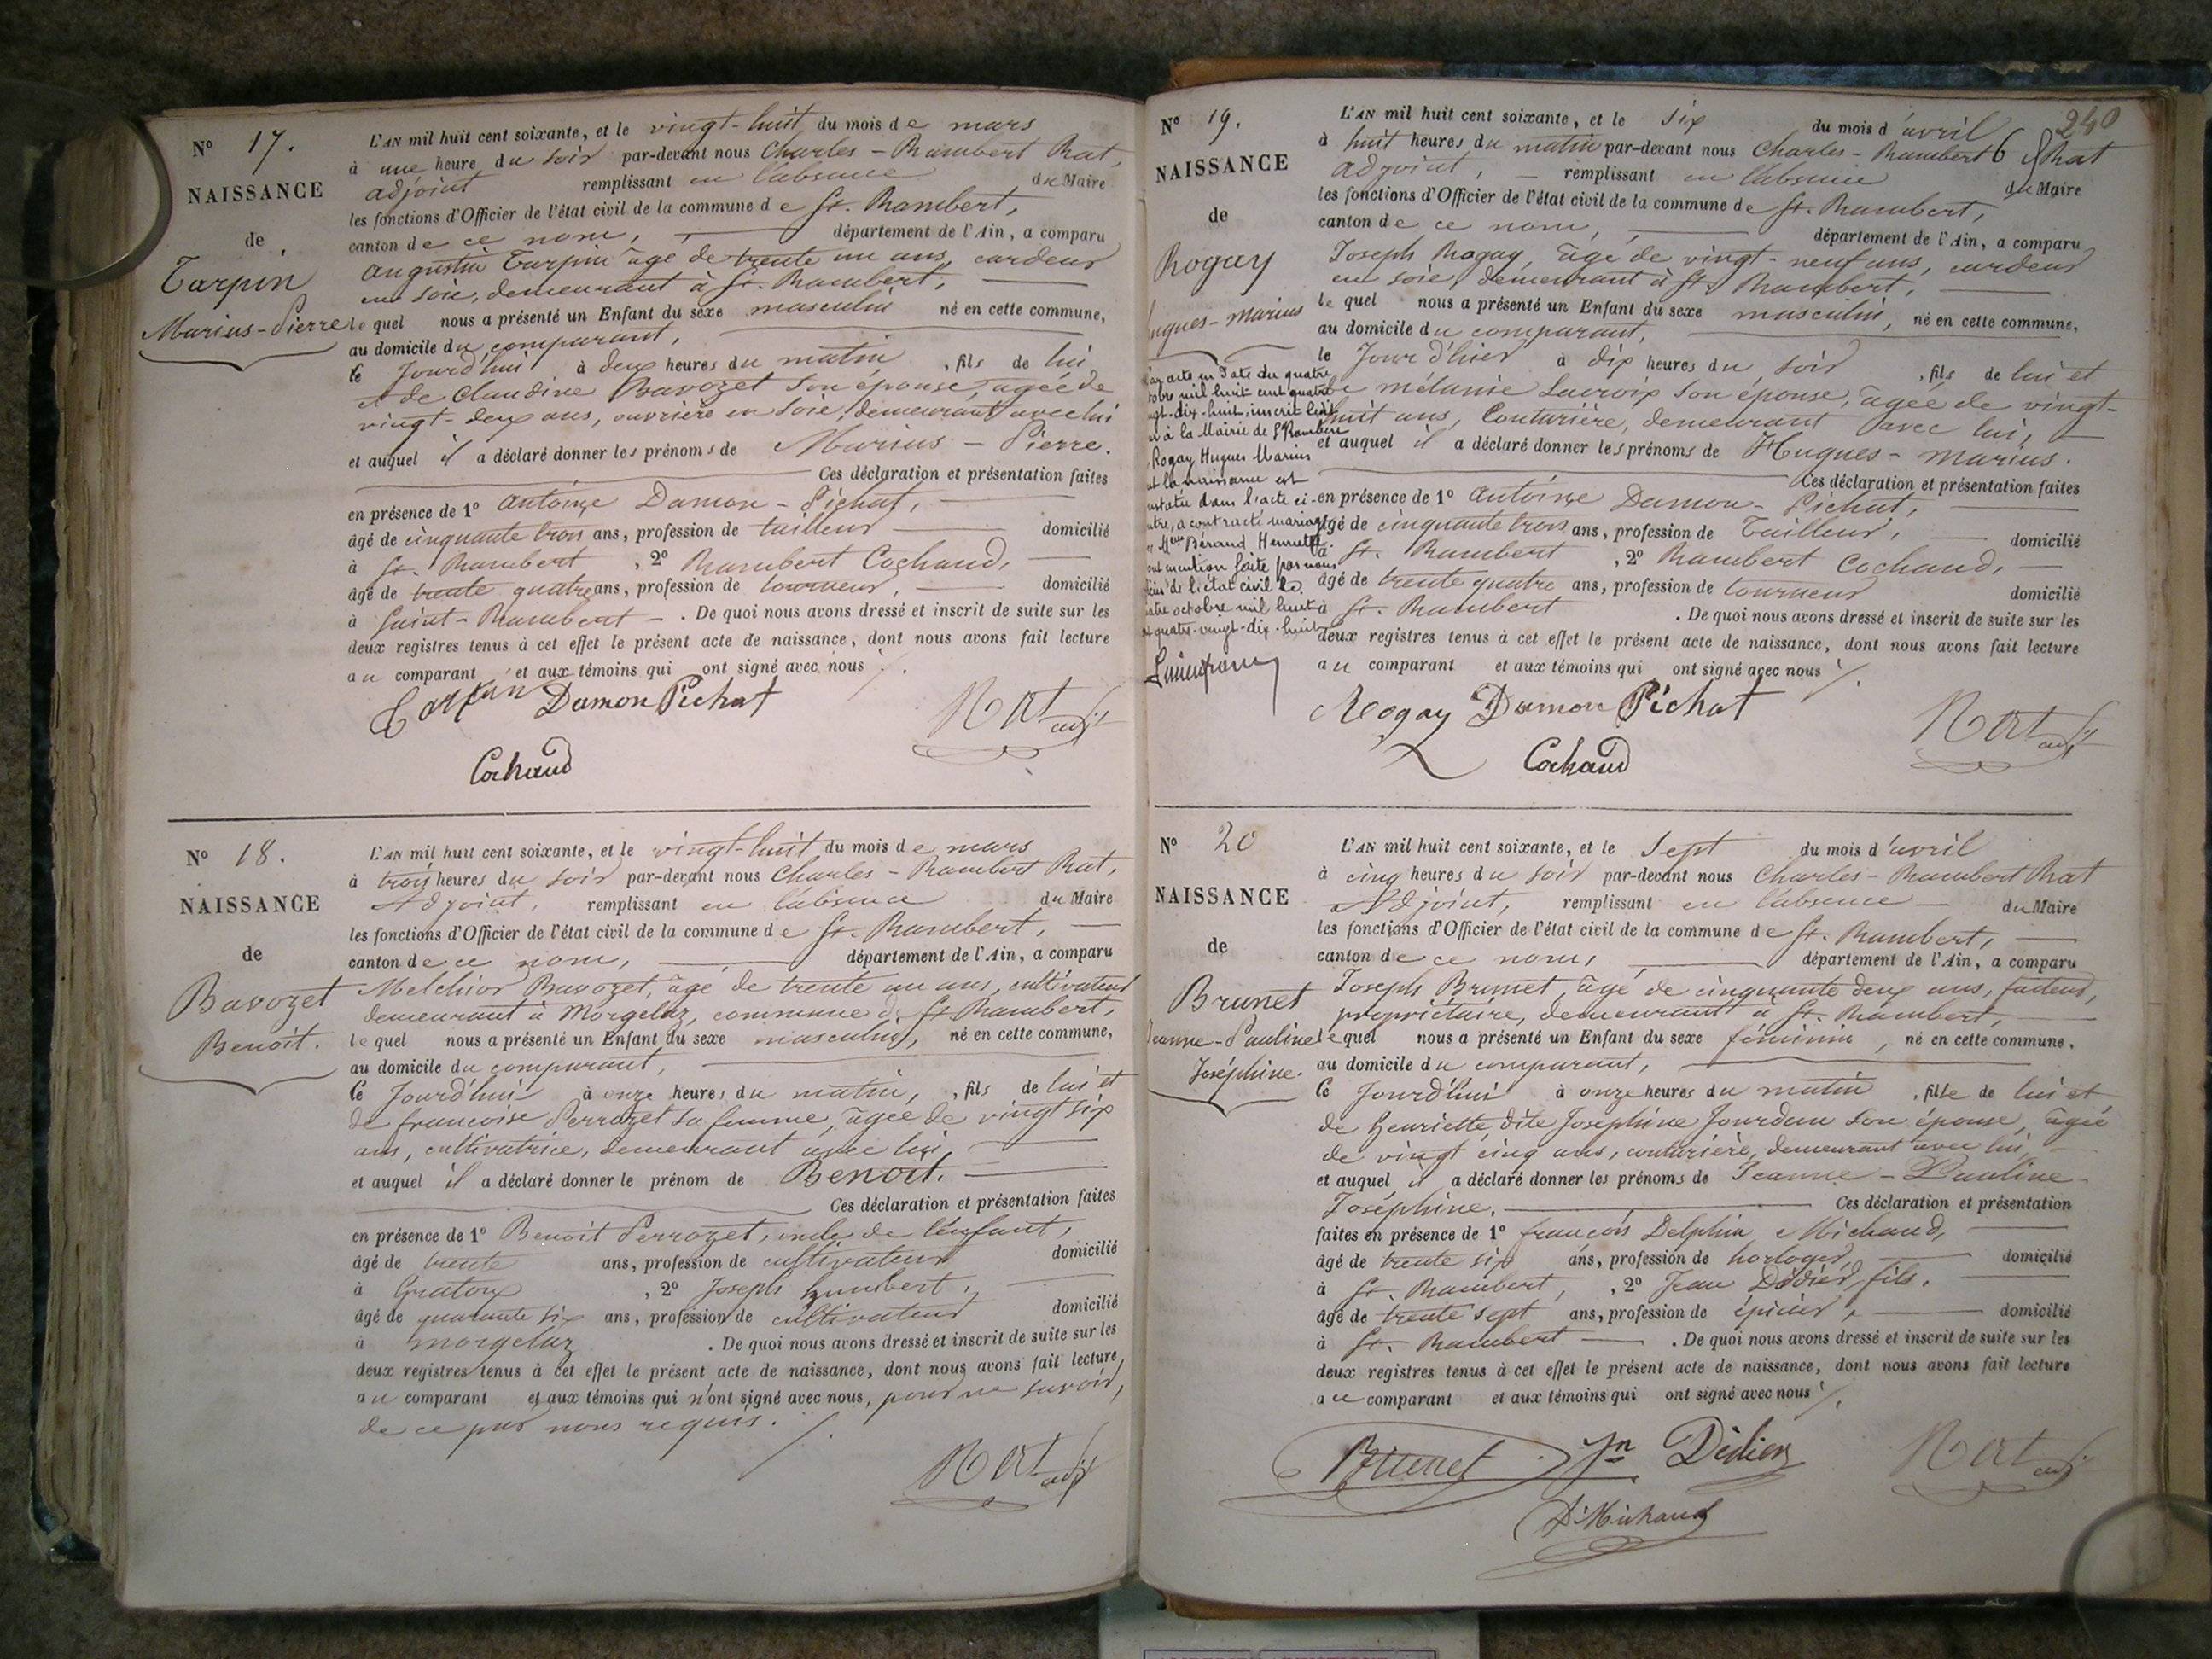 N° 17.
NAISSANCE
de
Tarpin
Marius-Pierre
L'AN mil huit cent soixante, et le vingt-huit du mois de mars
à une heure du soir par-devant nous Charles-Rambert Rat,
adjoint remplissant en l'absence du Maire
les fonctions d'Officier de l'état civil de la commune de St. Rambert,
canton de ce nom, département de l'Ain, a comparu
Augustin Tarpin âgé de trente un ans, cardeur
en soie, demeurant à St. Rambert,
lequel nous a présenté un Enfant du sexe masculin né en cette commune,
au domicile du comparant,
le Jourd'hui à deux heures du matin, fils de lui
et de Claudine Bavozet son épouse, agée de
vingt-deux ans, ouvrière en soie, demeurant avec lui
et auquel il a déclaré donner les prénoms de Marius-Pierre.
Ces déclaration et présentation faites
en présence de 1° Antoine Damon-Pichat,
âgé de cinquante trois ans, profession de tailleur domicilié
à St. Rambert, 2° Rambert Cochaud,
âgé de trente quatre ans, profession de tourneur, domicilié
à Saint-Rambert. De quoi nous avons dressé et inscrit de suite sur les
deux registres tenus à cet effet le présent acte de naissance, dont nous avons fait lecture
au comparant et aux témoins qui ont signé avec nous ./.
Tarpin Damon Pichat Rat adj
Cochaud
N° 18.
NAISSANCE
de
Bavozet
Benoit.
L'AN mil huit cent soixante, et le vingt-huit du mois de mars
à trois heures du soir par-devant nous Charles-Rambert Rat,
Adjoint, remplissant en l'absence du Maire
les fonctions d'Officier de l'état civil de la commune de St. Rambert,
canton de ce nom, département de l'Ain, a comparu
Melchior Bavozet, âgé de trente un ans, cultivateur
demeurant à Morgelaz, commune de St Rambert,
lequel nous a présenté un Enfant du sexe masculin, né en cette commune,
au domicile du comparant,
le Jourd'hui à onze heures du matin, fils de lui et
de francoise Perrozet sa femme, agée de vingt six
ans, cultivatrice, demeurant avec lui,
et auquel il a déclaré donner le prénom de Benoit.
Ces déclaration et présentation faites
en présence de 1° Benoit Perrozet, oncle de l'enfant,
âgé de trente ans, profession de cultivateur domicilié
à Gratoux, 2° Joseph humbert,
âgé de quarante six ans, profession de cultivateur domicilié
à morgelaz. De quoi nous avons dressé et inscrit de suite sur les
deux registres tenus à cet effet le présent acte de naissance, dont nous avons fait lecture
au comparant et aux témoins qui n'ont signé avec nous, pour ne savoir,
de ce par nous requis. ./.
Rat adj
240
N° 19.
NAISSANCE
de
Rogay
hugues-marius
acte en date du quatre
mil huit cent quatre
dix-huit, inscrit
à la Mairie de St Rambert
Rogay Hugues Marius
la naissance est
dans l'acte ci-
a contracté mariage
Béraud Henriette
mention faite par nous
de l'état civil le
octobre mil huit
quatre-vingt-dix-huit
L'AN mil huit cent soixante, et le six du mois d'avril
à huit heures du matin par-devant nous Charles-Rambert Rat
adjoint, remplissant en l'absence du Maire
les fonctions d'Officier de l'état civil de la commune de St. Rambert,
canton de ce nom, département de l'Ain, a comparu
Joseph Rogay, âgé de vingt-neuf ans, cardeur
en soie, demeurant à St. Rambert,
lequel nous a présenté un Enfant du sexe masculin, né en cette commune,
au domicile du comparant,
le Jour d'hier à dix heures du soir, fils de lui et
de mélanie Lacroix son épouse, agée de vingt-
huit ans, Couturière, demeurant avec lui,
et auquel il a déclaré donner les prénoms de Hugues-marius.
Ces déclaration et présentation faites
en présence de 1° Antoine Damon-Pichat,
âgé de cinquante trois ans, profession de Tailleur, domicilié
à St. Rambert, 2° Rambert Cochaud,
âgé de trente quatre ans, profession de tourneur domicilié
à St. Rambert. De quoi nous avons dressé et inscrit de suite sur les
deux registres tenus à cet effet le présent acte de naissance, dont nous avons fait lecture
au comparant et aux témoins qui ont signé avec nous ./.
Rogay Damon Pichat Rat adj
Cochaud
N° 20
NAISSANCE
de
Brunet
Jeanne-Pauline
Joséphine.
L'AN mil huit cent soixante, et le Sept du mois d'avril
à cinq heures du soir par-devant nous Charles-Rambert Rat
Adjoint, remplissant en l'absence du Maire
les fonctions d'Officier de l'état civil de la commune de St. Rambert,
canton de ce nom, département de l'Ain, a comparu
Joseph Brunet, âgé de cinquante deux ans, facteur,
propriétaire, demeurant à St. Rambert,
lequel nous a présenté un Enfant du sexe féminin, né en cette commune,
au domicile du comparant,
le Jourd'hui à onze heures du matin, fille de lui et
de henriette dite Josephine Jourdan son épouse, agée
de vingt cinq ans, couturière, demeurant avec lui,
et auquel il a déclaré donner les prénoms de Jeanne-Pauline-
Joséphine. Ces déclaration et présentation
faites en présence de 1° françois Delphin Michaud,
âgé de trente six ans, profession de horloger, domicilié
à St. Rambert, 2° Jean Dédier, fils,
âgé de trente sept ans, profession de épicier, domicilié
à St. Rambert. De quoi nous avons dressé et inscrit de suite sur les
deux registres tenus à cet effet le présent acte de naissance, dont nous avons fait lecture
au comparant et aux témoins qui ont signé avec nous ./.
Brunet Jn Dédier Rat adj
D. Michaud